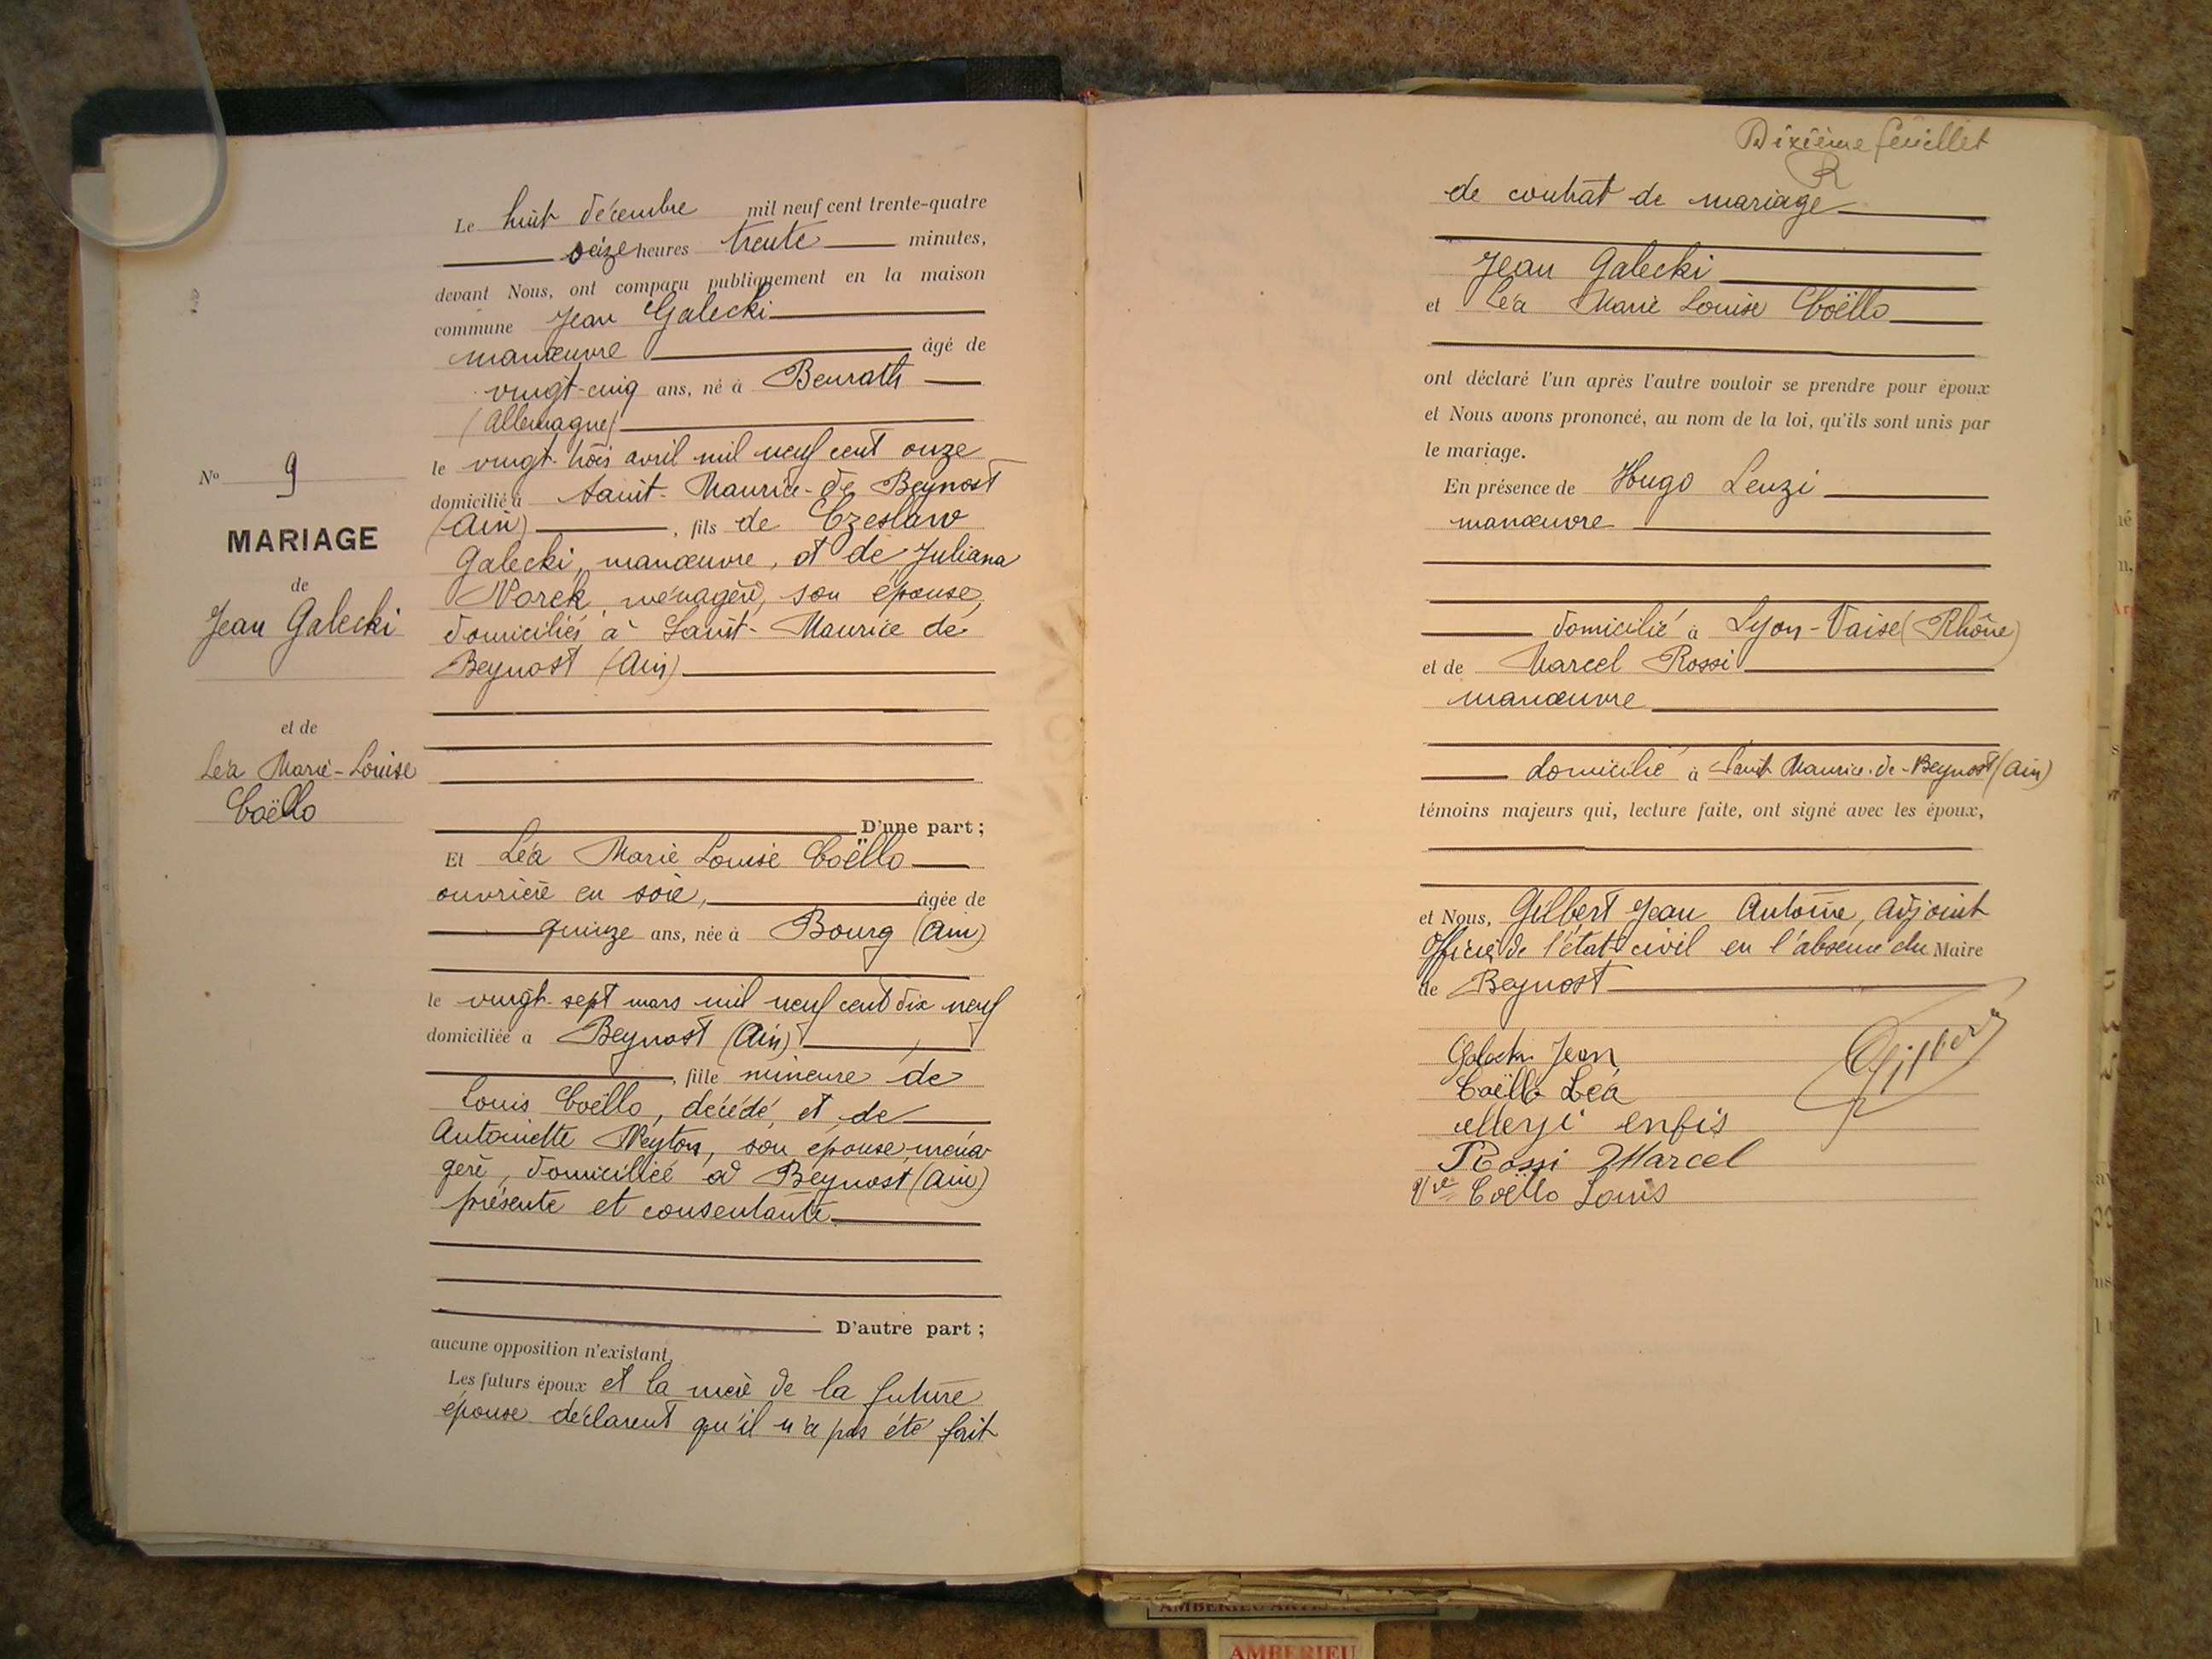 Le huit décembre mil neuf cent trente-quatre
seize heures trente minutes,
devant Nous, ont comparu publiquement en la maison
commune Jean Galecki
manœuvre âgé de
vingt-cinq ans, né à Benrath
(Allemagne)
le vingt-trois avril mil neuf cent onze
domicilié à Saint-Maurice-de Beynost
(Ain), fils de Czeslaw
Galecki, manœuvre, et de Juliana
Norek, ménagère, son épouse,
domiciliés à Saint-Maurice de
Beynost (Ain)
D'une part;
Et Léa Marie Louise Coëllo
ouvrière en soie, âgée de
quinze ans, née à Bourg (Ain)
le vingt-sept mars mil neuf cent dix neuf
domiciliée à Beynost (Ain)
, fille mineure de
Louis Coëllo, décédé, et de
Antoinette Neyton, son épouse, ména-
gère, domiciliée à Beynost (Ain)
présente et consentante.
D'autre part;
aucune opposition n'existant,
Les futurs époux et la mère de la future
épouse déclarent qu'il n'a pas été fait
No 9
MARIAGE
de
Jean Galecki
et de
Léa Marie-Louise
Coëllo
Dixième feuillet
R
de contrat de mariage
Jean Galecki
et Léa Marie Louise Coëllo
ont déclaré l'un après l'autre vouloir se prendre pour époux
et Nous avons prononcé, au nom de la loi, qu'ils sont unis par
le mariage.
En présence de Hugo Lenzi
manœuvre
domicilié à Lyon-Vaise (Rhône)
et de Marcel Rossi
manœuvre
domicilié à Saint Maurice-de-Beynost (Ain)
témoins majeurs qui, lecture faite, ont signé avec les époux,
et Nous, Gilbert Jean Antoine, adjoint
Officier de l'état civil en l'absence du Maire
de Beynost
Galecki Jean
Gilbert
Coëllo Léa
Rossi Marcel
Vve Coëllo Louis
AMBERIEU
AMBERIEU